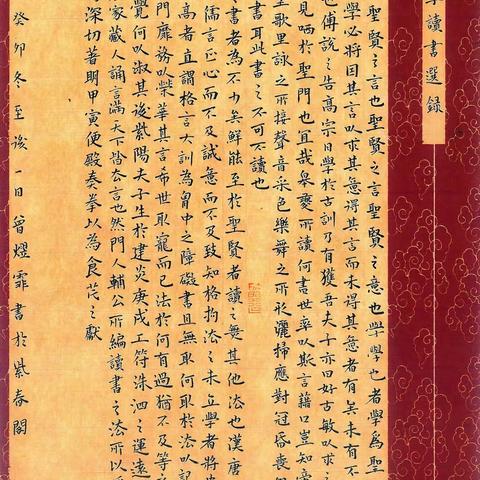 學讀書選錄
聖賢之言也聖賢之言聖賢之意也學學也者學為聖
學必將因其言以求其意得其言而未得其意者有矣未有不
也傅說之告高宗曰學於古訓乃有獲吾夫子亦曰好古敏以求之
見哂於聖門也宜哉皋夔所讀何書世率以斯言藉口豈知
至歌里詠之所接聲音采色樂舞之所形灑掃應對冠昏喪
書耳此書之不可不讀也
書者為不少矣鮮能至於聖賢者讀之無其他法也漢唐
儒言正心而不及誠意而不及致知格物法之未立學者將
高者直謂格言大訓為胷中之障礙書且無取何取於法以記
門靡務以榮華其言希世取寵而已法於何有過猶不及等
覺何以淑其後紫陽夫子生於建炎庚戌工符洙泗之運遠
家藏人誦言滿天下皆夲言也然門人輔公所編讀書之法所以
深切著明甲寅便殿奏拳以為食芹之獻
癸卯冬至後一日曾熠霏書於紫春閣